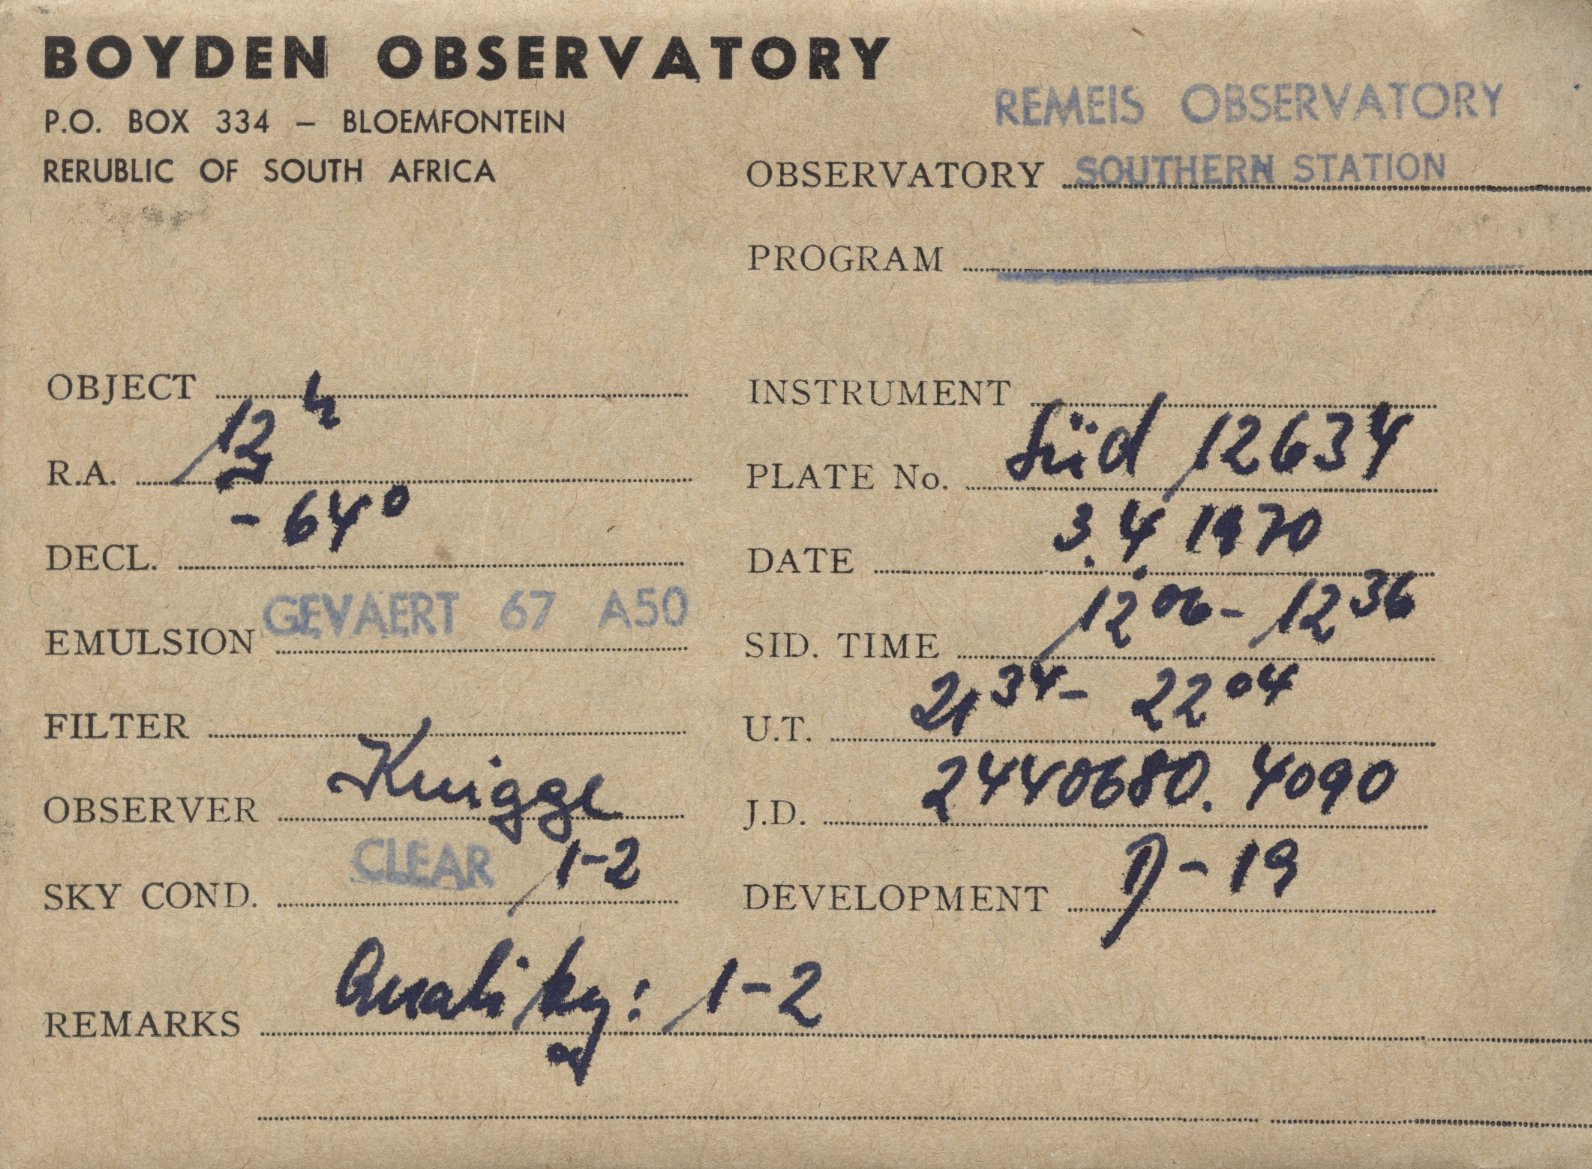 BOYDEN OBSERVATORY
P.O. BOX 334 – BLOEMFONTEIN
RERUBLIC OF SOUTH AFRICA
REMEIS OBSERVATORY
OBSERVATORY SOUTHERN STATION
PROGRAM
OBJECT
R.A. 13h
DECL. -64°
EMULSION GEVAERT 67 A50
FILTER
OBSERVER Knigge
SKY COND. CLEAR 1-2
INSTRUMENT
PLATE No. Süd 12634
DATE 3.4.1970
SID. TIME 12 06 - 12 36
U.T. 21 34 - 22 04
J.D. 2440680.4090
DEVELOPMENT D-19
REMARKS Quality: 1-2